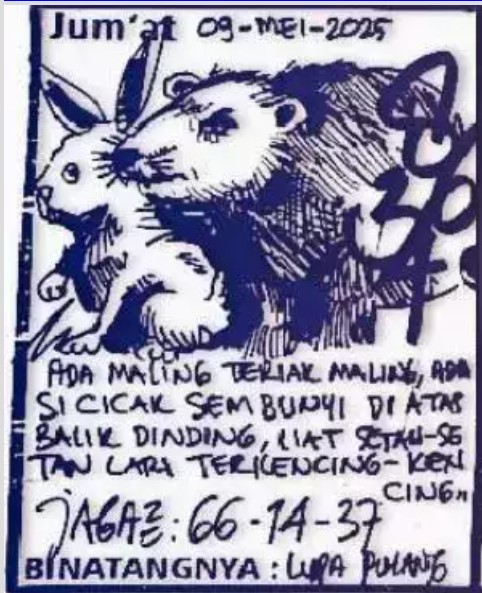 Jum'at 09-MEI-2025
ADA MALING TERIAK MALING, ADA
SI CICAK SEMBUNYI DI ATAS
BALIK DINDING, LIAT SETAN-SE
TAN LARI TERKENCING-KEN
CING"
JAGA2: 66-14-37
BINATANGNYA : LUPA PULANG